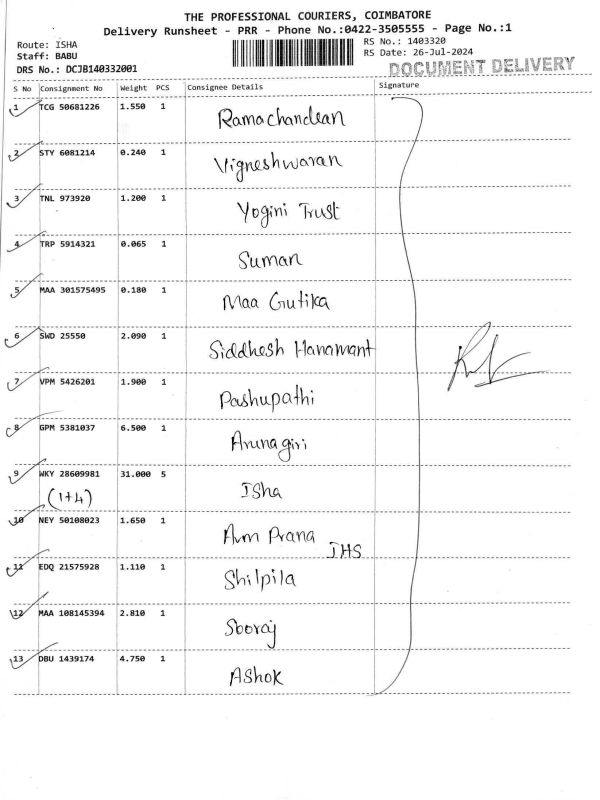 THE PROFESSIONAL COURIERS, COIMBATORE
Delivery Runsheet - PRR - Phone No.:0422-3505555 - Page No.:1
Route: ISHA
RS No.: 1403320
Staff: BABU
RS Date: 26-Jul-2024
DRS No.: DCJB140332001
DOCUMENT DELIVERY
S No Consignment No Weight PCS Consignee Details Signature
1 TCG 50681226 1.550 1 Ramachandean
2 STY 6081214 0.240 1 Vigneshwaran
3 TNL 973920 1.200 1 Yogini Trust
4 TRP 5914321 0.065 1 Suman
5 MAA 301575495 0.180 1 Maa Gutika
6 SWD 25550 2.090 1 Siddhesh Hanamant
7 VPM 5426201 1.900 1 Pashupathi
8 GPM 5381037 6.500 1 Arunagiri
9 WKY 28609981 31.000 5 Isha
(1+4)
10 NEY 50108023 1.650 1 Avm Prana IHS
11 EDQ 21575928 1.110 1 Shilpila
12 MAA 108145394 2.810 1 Sooraj
13 DBU 1439174 4.750 1 Ashok